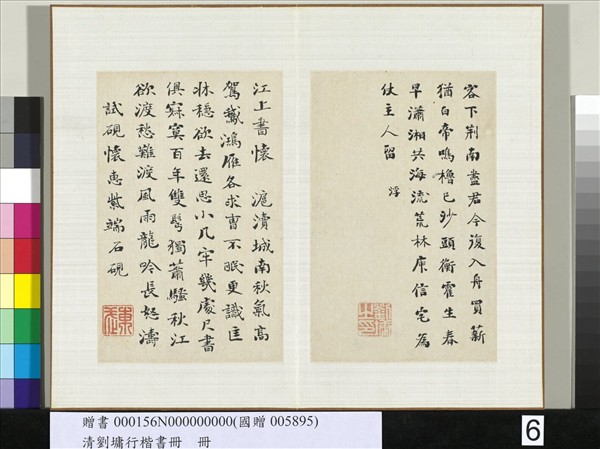 客下荊南盡君今復入舟買薪
猶白帝鳴櫓已沙頭衡霍生春
早瀟湘共海流荒林庾信宅為
仗主人留 浮
江上書懷 滬瀆城南秋氣高
駕鵞鴻雁各求曹不眠更識匡
牀穩欲去還思小几牢幾處尺書
俱寂寞百年雙鬢獨蕭騷秋江
欲渡愁難渡風雨龍吟長怒濤
試硯懷惠紫端石硯
東武
劉墉之印
贈書 000156N000000000(國贈 005895)
清劉墉行楷書冊 冊
6